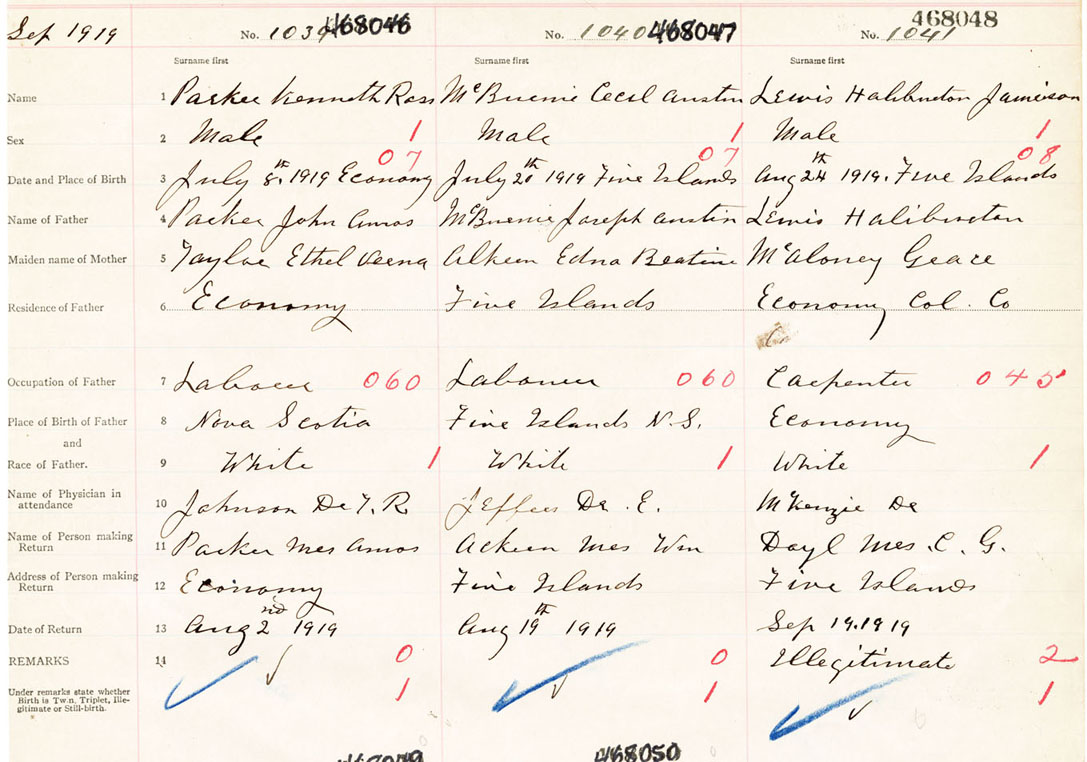 Sep 1919 No. 1039 468046 No. 1040 468047 No. 1041 468048
Surname first Surname first Surname first
Name 1 Parker Kenneth Ross McBurnie Cecil Austin Lewis Haliburton Jamieson
Sex 2 Male 1 Male 1 Male 1
07 07 08
Date and Place of Birth 3 July 8th 1919 Economy July 20th 1919 Five Islands Aug 24th 1919. Five Islands
Name of Father 4 Parker John Amos McBurnie Joseph Austin Lewis Haliburton
Maiden name of Mother 5 Taylor Ethel Verna Edna Beatrice McAloney Grace
Residence of Father 6 Economy Five Islands Economy Col. Co
Occupation of Father 7 Labourer 060 Labourer 060 Carpenter 045
Place of Birth of Father 8 Nova Scotia Five Islands N.S. Economy
and
Race of Father. 9 White 1 White 1 White 1
Name of Physician in
attendance 10 Johnson Dr T. R. Jeffers Dr. E. McKenzie Dr
Name of Person making
Return 11 Parker Mrs Amos Mrs Wm Mrs. C. G.
Address of Person making
Return 12 Economy Five Islands Five Islands
Date of Return 13 Aug 2nd 1919 Aug 19th 1919 Sep 19. 1919
REMARKS 14 0 0 Illegitimate 2
Under remarks state whether 1 1 1
Birth is Twin, Triplet, Ille-
gitimate or Still-birth.
468049 468050